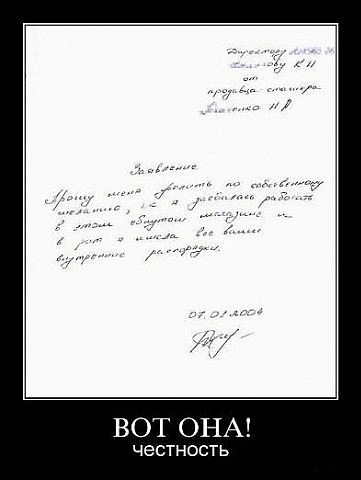 Директору
К Н
от
продавца-стажера
енко Н А
Заявление
Прошу меня уволить по собственному
желанию, т.к я заебалась работать
в этом ебнутом магазине и
в рот я имела все ваши
внутренние распорядки.
07.03 2004
ВОТ ОНА!
честность